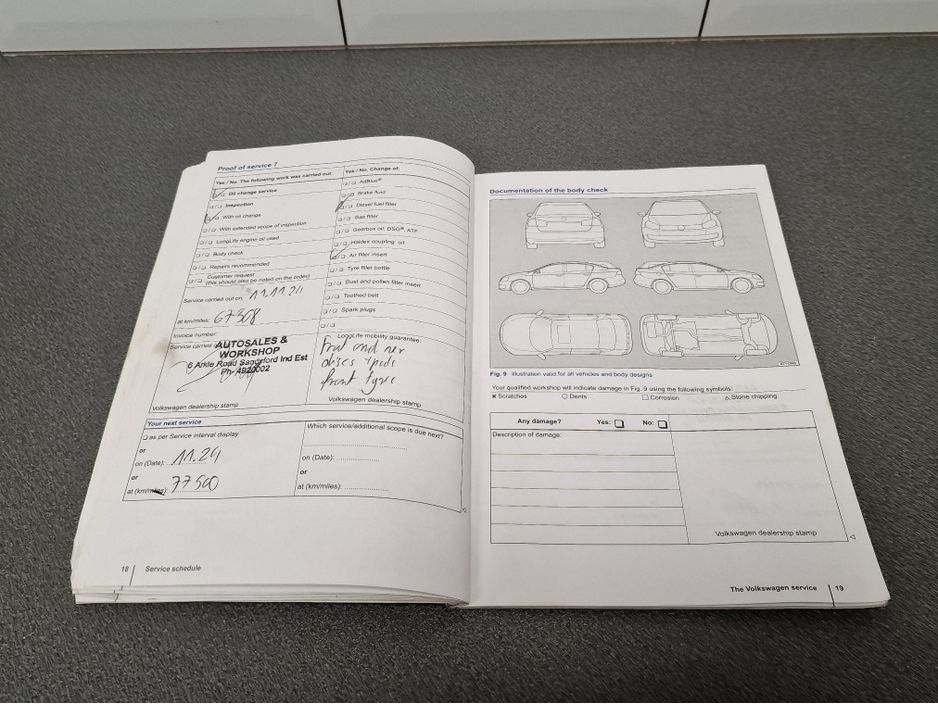 Proof of service 7
Yes / No. The following work was carried out:
Oil change service
Inspection
With oil change
With extended scope of inspection
LongLife engine oil used
Body check
Repairs recommended
Customer request
(this should also be noted on the order)
Service carried out on: 11.11.24
at km/miles: 67508
Invoice number:
Service carried
AUTOSALES &
WORKSHOP
6 Arkle Road Sandyford Ind Est
Ph: 4920002
Volkswagen dealership stamp
Yes / No. Change of:
AdBlue®
Brake fluid
Diesel fuel filter
Gas filter
Gearbox oil: DSG®, ATF
Haldex coupling: oil
Air filter insert
Tyre filler bottle
Dust and pollen filter insert
Toothed belt
Spark plugs
LongLife mobility guarantee:
discs + pads
front tyre
Volkswagen dealership stamp
Your next service
as per Service interval display
or
on (Date): 11.24
or
at (km/miles): 77500
Which service/additional scope is due next?
on (Date):
or
at (km/miles):
18 Service schedule
Documentation of the body check
Fig. 9 Illustration valid for all vehicles and body designs
Your qualified workshop will indicate damage in Fig. 9 using the following symbols:
× Scratches ○ Dents □ Corrosion △ Stone chipping
Any damage? Yes: No:
Description of damage:
Volkswagen dealership stamp
The Volkswagen service 19